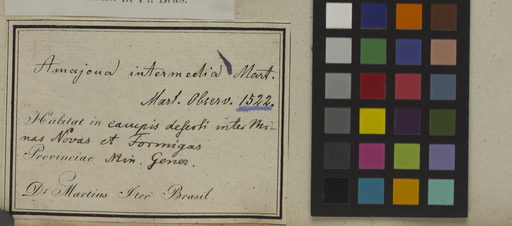 Amajoua intermedia Mart.
Mart. Observ. 1522.
Habitat in campis deserti inter Mi-
nas Novas et Formigas
Provinciae Min. Gener.
Dr Martius Iter Brasil.